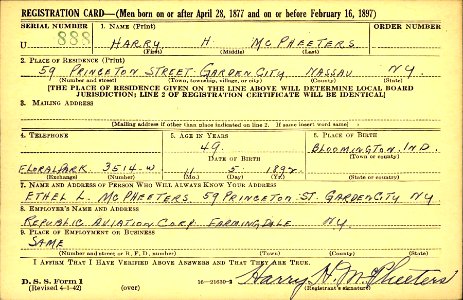 REGISTRATION CARD—(Men born on or after April 28, 1877 and on or before February 16, 1897)
SERIAL NUMBER 1. NAME (Print)
U 888 HARRY H. MCPHEETERS
(First) (Middle) (Last)
2. PLACE OF RESIDENCE (Print)
59 PRINCETON STREET GARDEN CITY NASSAU NY
(Number and street) (Town, township, village, or city) (County) (State)
[THE PLACE OF RESIDENCE GIVEN ON THE LINE ABOVE WILL DETERMINE LOCAL BOARD
JURISDICTION; LINE 2 OF REGISTRATION CERTIFICATE WILL BE IDENTICAL]
3. MAILING ADDRESS
[Mailing address if other than place indicated on line 2. If same insert word same]
4. TELEPHONE 5. AGE IN YEARS 6. PLACE OF BIRTH
49 BLOOMINGTON
DATE OF BIRTH (Town or county)
FLORAL PARK 3514-W 11 5 1892 IND.
(Exchange) (Number) (Mo.) (Day) (Yr.) (State or country)
7. NAME AND ADDRESS OF PERSON WHO WILL ALWAYS KNOW YOUR ADDRESS
ETHEL L. MCPHEETERS 59 PRINCETON ST. GARDEN CITY NY
8. EMPLOYER'S NAME AND ADDRESS
REPUBLIC AVIATION CORP. FARMINGDALE NY.
9. PLACE OF EMPLOYMENT OR BUSINESS
SAME
(Number and street or R. F. D. number) (Town) (County) (State)
I AFFIRM THAT I HAVE VERIFIED ABOVE ANSWERS AND THAT THEY ARE TRUE.
D. S. S. Form 1 Harry H. McPheeters
(Revised 4-1-42) (over) 16—21630-2 (Registrant's signature)